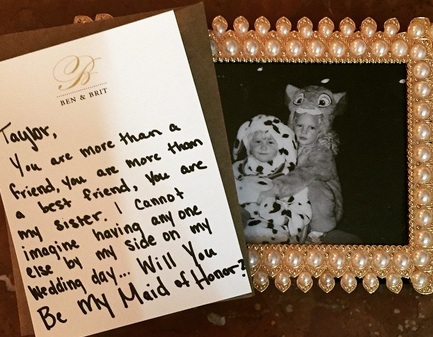 B
BEN & BRIT
Taylor,
You are more than a
friend, you are more than
a best friend, you are
my sister. I cannot
imagine having any one
else by my side on my
wedding day... Will You
Be My Maid of Honor?